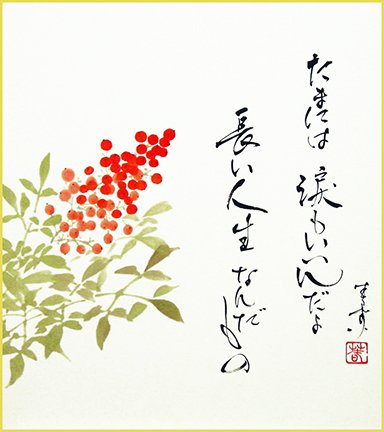 たまには
涙もいいんだよ
長い人生なんだもの